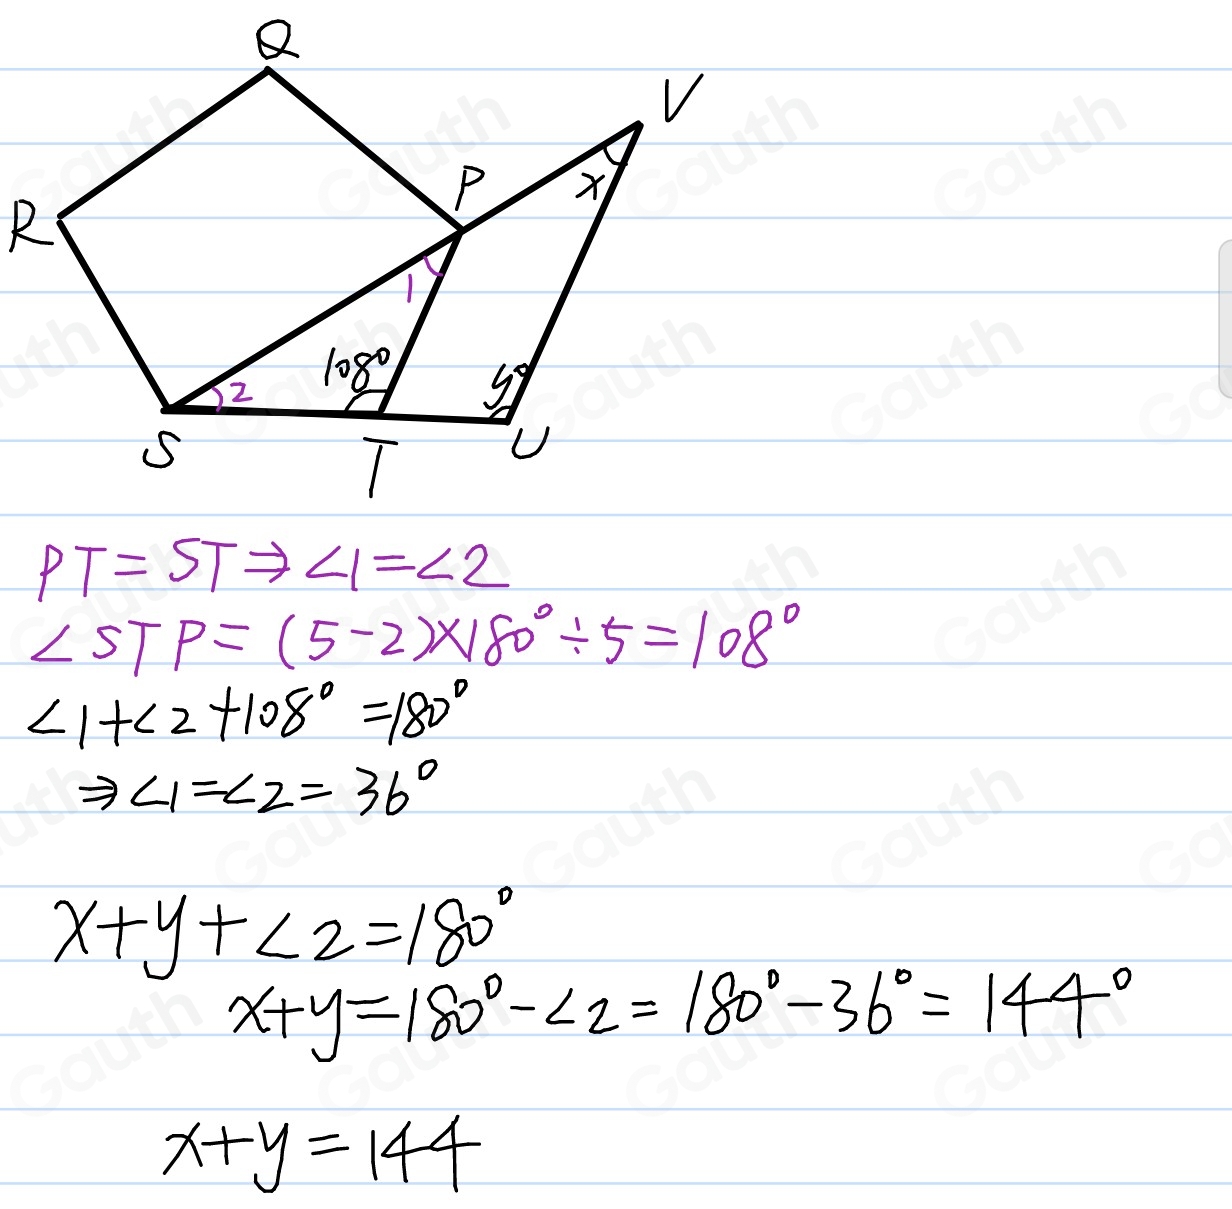 Q
V
P
x
R
1
108°
y°
2
S
T
U
PT = ST ⇒ ∠1 = ∠2
∠STP = (5-2)×180° ÷ 5 = 108°
∠1 + ∠2 + 108° = 180°
⇒ ∠1 = ∠2 = 36°
x + y + ∠2 = 180°
x + y = 180° - ∠2 = 180° - 36° = 144°
x + y = 144